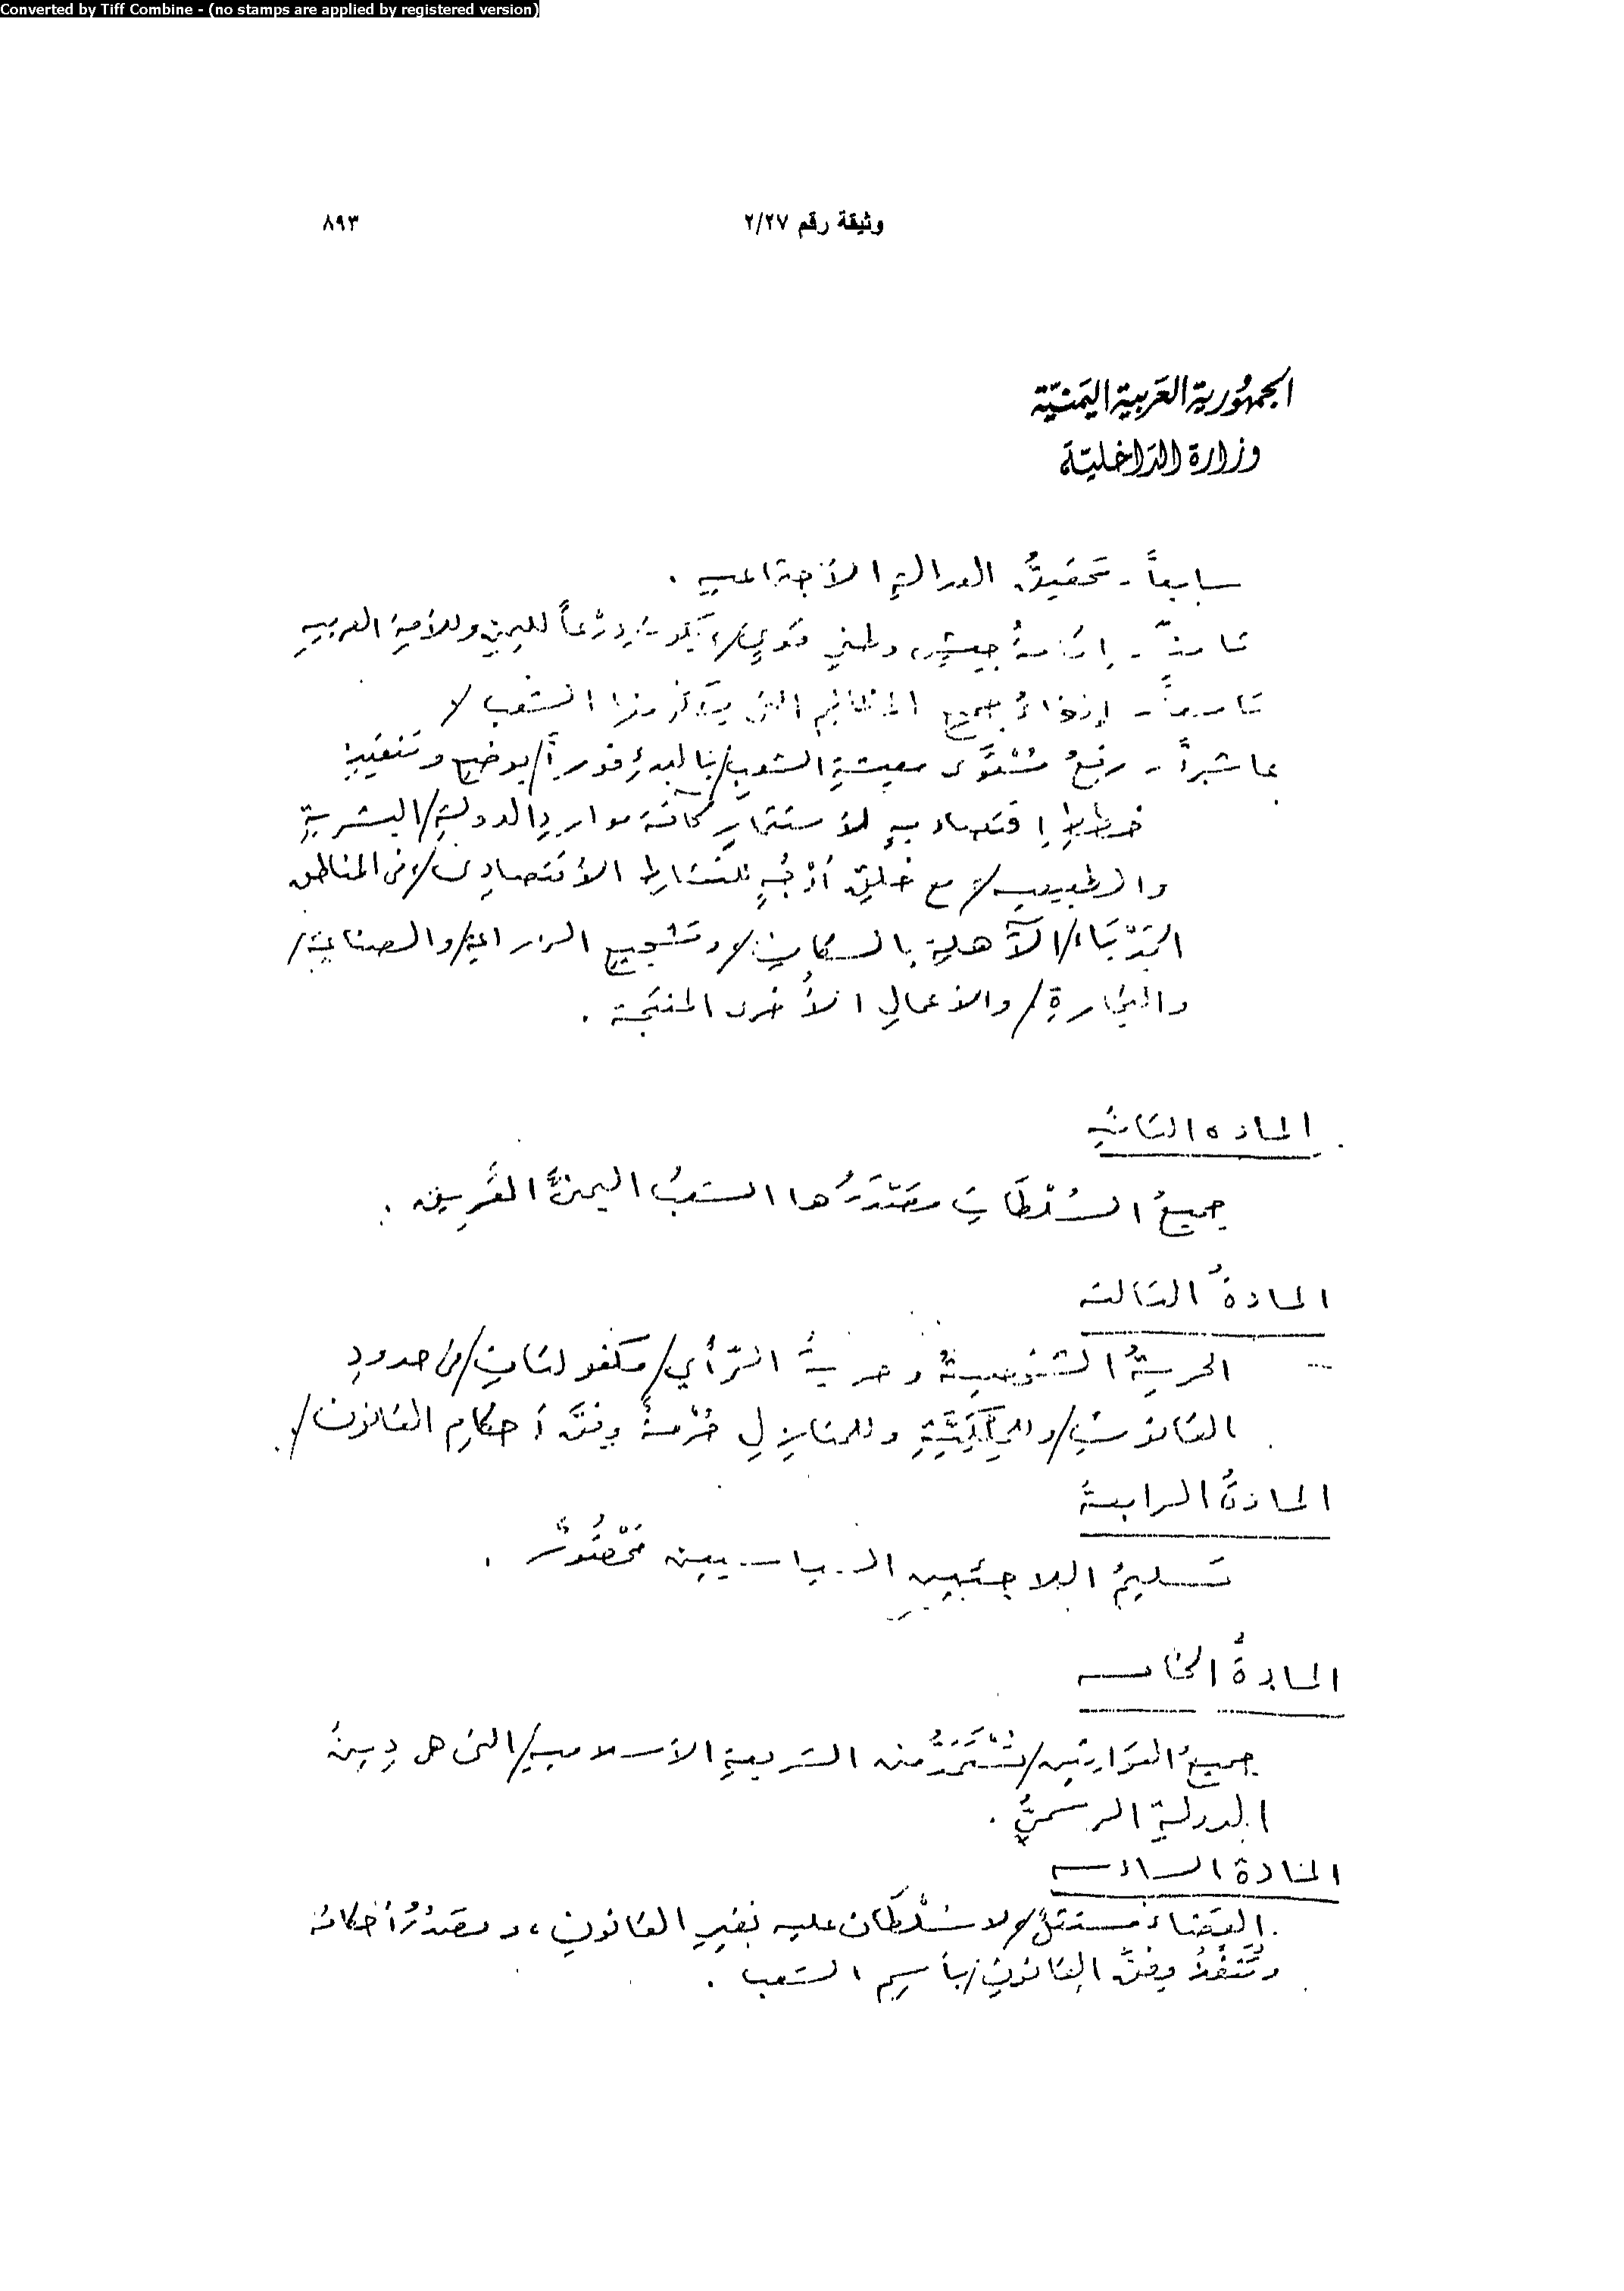 Converted by Tiff Combine - (no stamps are applied by registered version)
وثيقة رقم ٢/٢٧
٨٩٣
الجمهُورية العَربية اليَمنيّة
وزارة الدَاخليّة
سابعاً - تحقيقُ العدالةِ الأجتماعيه .
ثامناً - إقامةُ جيشٍ وطني قويٍ/، يكونُ دِرْعاً لليمنِ وللأمةِ العربيه
تاسعاً - إنهاءُ جميع المظالِم التي يتذمر منها الشعب /
عاشراً - رفعُ مُسْتَوَى معيشةِ الشعبِ/بالبدءِ فوراً/بوضعِ وتنفيذِ
خططٍ إقتصاديهٍ لأستثمارِ كافة مواردِ الدولةِ/البشريةِ
والطبيعيه/ مع خلقِ أوجُهٍ للنشاطِ الأقتصادى/فى المناطق
الجَدْبَاء/الآهلةِ بالسكانِ/وتشجيعِ الزراعةِ/والصناعةِ/
والتجارةِ/والأعمالِ الأُخرى المنتجة .
الماده الثانيه
جميعُ السُلْطَاتِ مصْدَرُها الشعبُ اليمنىُّ العَرِيق .
المادةُ الثالثه
الحريةُ الشخصيةُ وحريةُ الرّأي/مكفولتانِ/فى حدودِ
القانونِ/وللمِلْكِيَّةِ وللمنازلِ حُرْمةٌ وِفقَ أحكامِ القانون/.
المادةُ الرابعةُ
تسليمُ اللاجئيين السياسيين مَحْظُورٌ .
المادةُ الخامسه
جميعُ القوَانين/تُسْتَمَدُّ من الشريعةِ الأسلاميهِ/التى هى دِينُ
الدولةِ الرسمىُّ .
المادة السادسه
القضاءُ مستقلٌ/لا سُلْطَان عليه بغيرِ القانونِ ، وتصْدُرُ أحكامُه
وتُنَفَّذُ وِفقَ القانونِ/بأسمِ الشعب .